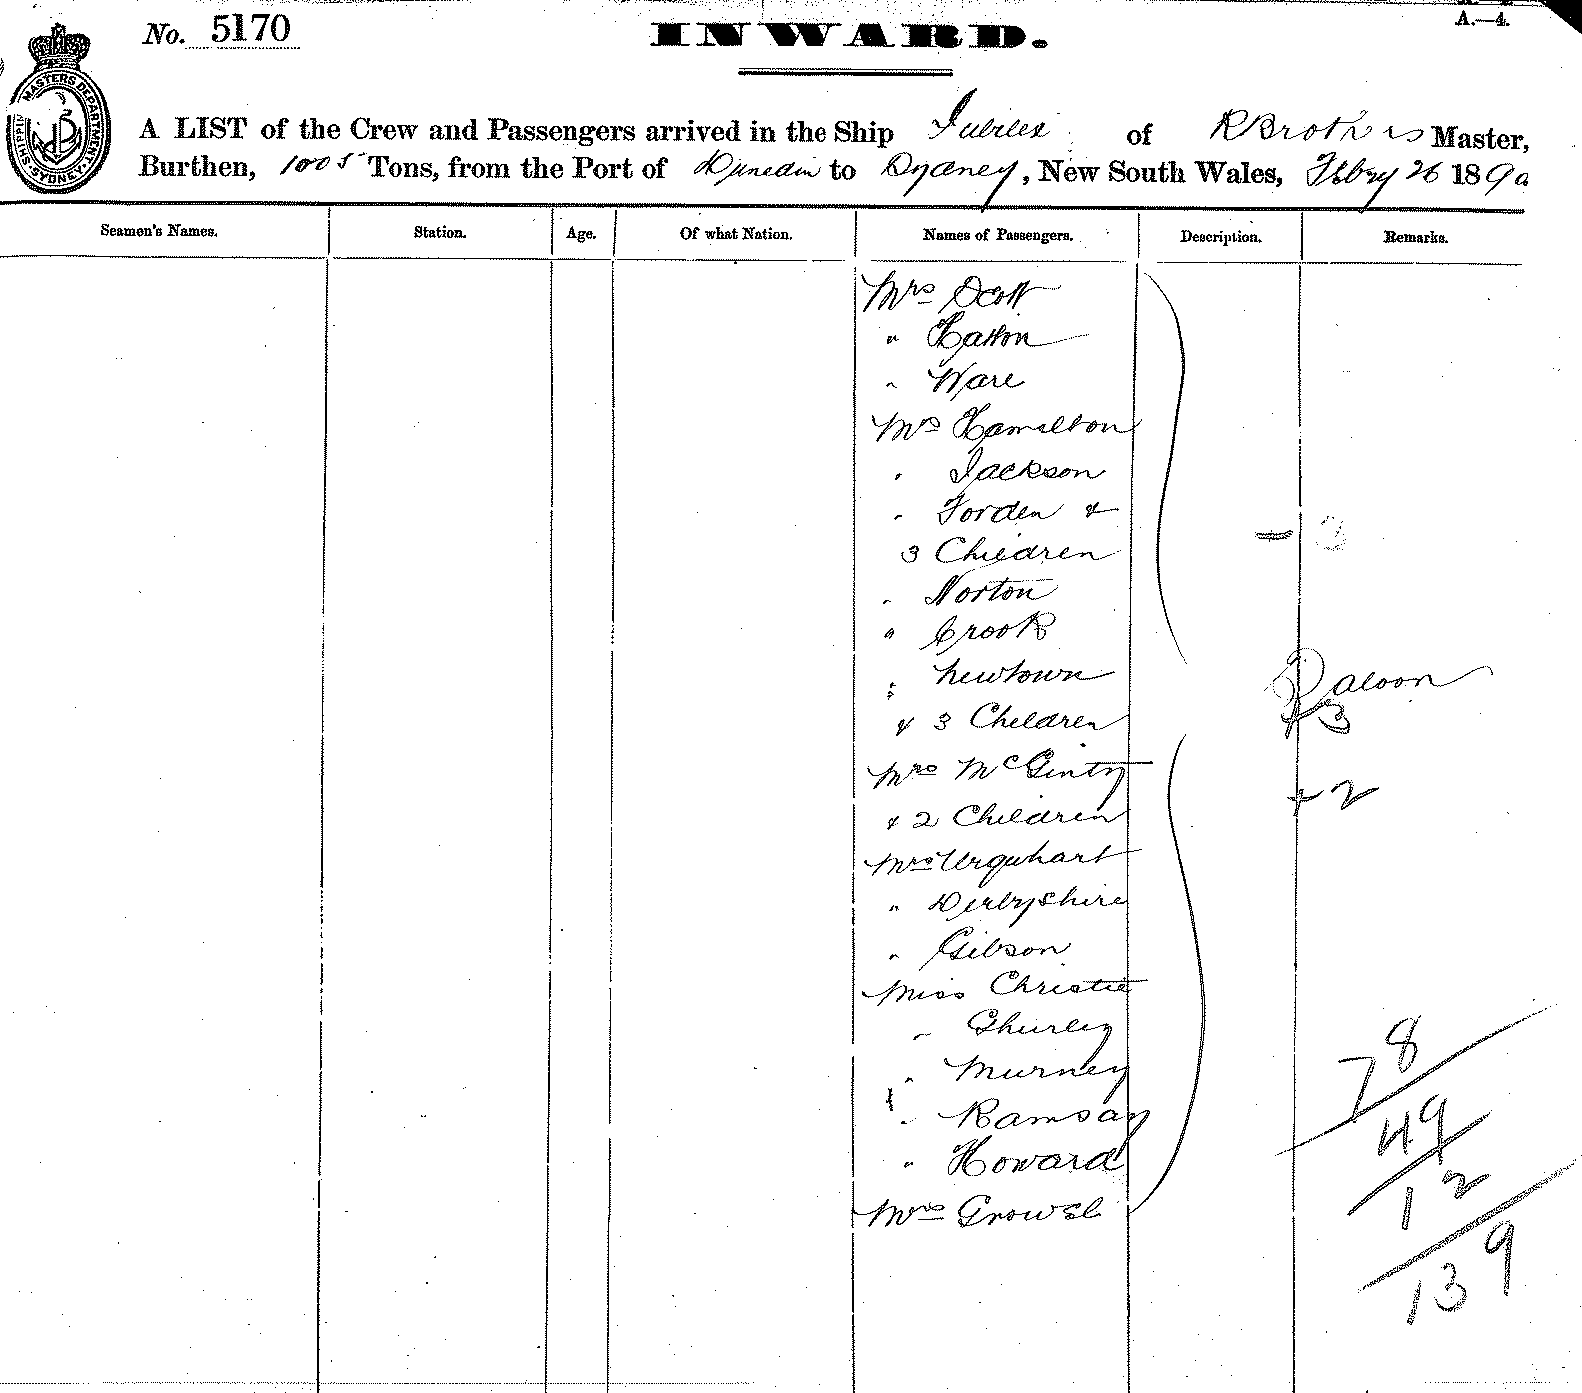 No. 5170
INWARD.
A.—4.
SHIPPING MASTERS DEPARTMENT SYDNEY
A LIST of the Crew and Passengers arrived in the Ship Jubilee of R Broth rs Master,
Burthen, 1005 Tons, from the Port of Dunedin to Sydney, New South Wales, Febry 26 1890
Seamen's Names. Station. Age. Of what Nation. Names of Passengers. Description. Remarks.
Mrs Scott
" Hatton
" Ware
Mrs Hamilton
" Jackson
" Forden &
3 Children - 3
" Norton
" Crook
" Newtown Saloon
& 3 Children + 3
Mrs McGinty
& 2 Children + 2
Mrs Urquhart
" Derbyshire
" Gibson
Miss Christie
" Ghurley
" Murney
" Ramsay
" Howard
Mrs Growsl
78
49
12
139